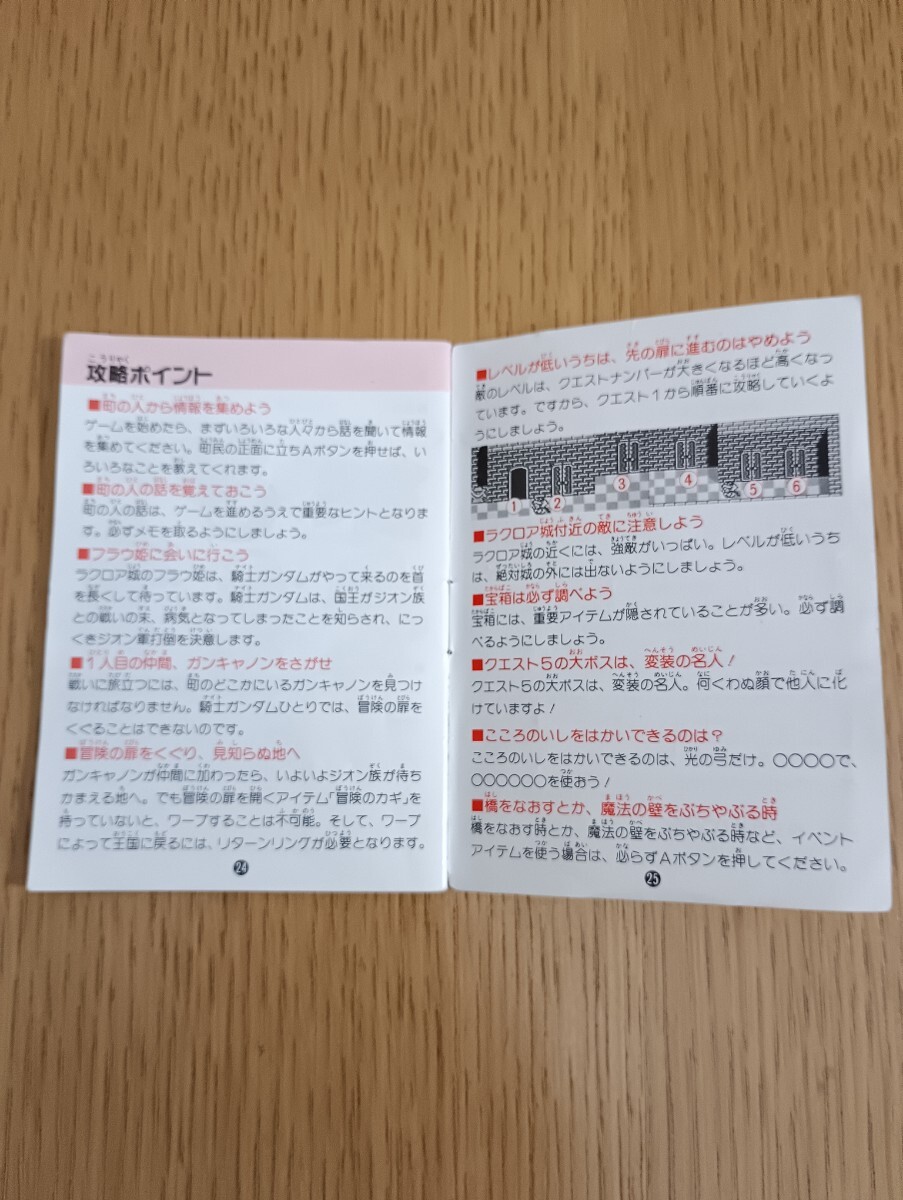 攻略ポイント
■町の人から情報を集めよう
ゲームを始めたら、まずいろいろな人々から話を聞いて情報
を集めてください。町民の正面に立ちAボタンを押せば、い
ろいろなことを教えてくれます。
■町の人の話を覚えておこう
町の人の話は、ゲームを進めるうえで重要なヒントとなりま
す。必ずメモを取るようにしましょう。
■フラウ姫に会いに行こう
ラクロア城のフラウ姫は、騎士ガンダムがやって来るのを首
を長くして待っています。騎士ガンダムは、国王がジオン族
との戦いの末、病気となってしまったことを知らされ、にっ
くきジオン軍打倒を決意します。
■1人目の仲間、ガンキャノンをさがせ
戦いに旅立つには、町のどこかにいるガンキャノンを見つけ
なければなりません。騎士ガンダムひとりでは、冒険の扉を
くぐることはできないのです。
■冒険の扉をくぐり、見知らぬ地へ
ガンキャノンが仲間に加わったら、いよいよジオン族が待ち
かまえる地へ。でも冒険の扉を開くアイテム「冒険のカギ」を
持っていないと、ワープすることは不可能。そして、ワープ
によって王国に戻るには、リターンリングが必要となります。
24
■レベルが低いうちは、先の扉に進むのはやめよう
敵のレベルは、クエストナンバーが大きくなるほど高くなっ
ています。ですから、クエスト1から順番に攻略していくよ
うにしましょう。
① ② ③ ④ ⑤ ⑥
■ラクロア城付近の敵に注意しよう
ラクロア城の近くには、強敵がいっぱい。レベルが低いうち
は、絶対城の外には出ないようにしましょう。
■宝箱は必ず調べよう
宝箱には、重要アイテムが隠されていることが多い。必ず調
べるようにしましょう。
■クエスト5の大ボスは、変装の名人!
クエスト5の大ボスは、変装の名人。何くわぬ顔で他人に化
けていますよ!
■こころのいしをはかいできるのは?
こころのいしをはかいできるのは、光の弓だけ。○○○○で、
○○○○○○を使おう!
■橋をなおすとか、魔法の壁をぶちやぶる時
橋をなおす時とか、魔法の壁をぶちやぶる時など、イベント
アイテムを使う場合は、必らずAボタンを押してください。
25